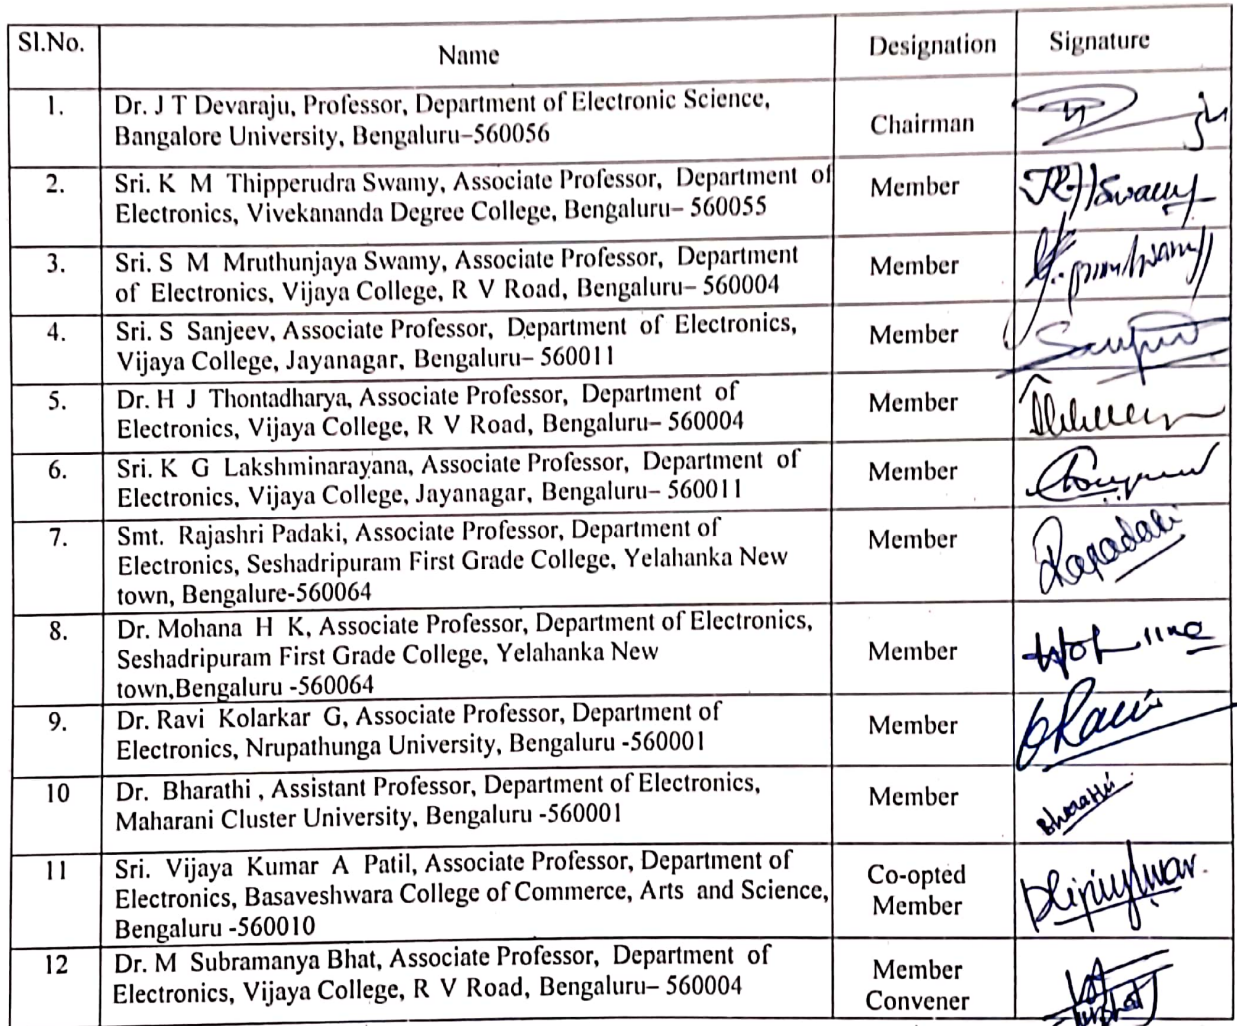 Sl.No. Name Designation Signature
1. Dr. J T Devaraju, Professor, Department of Electronic Science, Chairman
Bangalore University, Bengaluru–560056
2. Sri. K M Thipperudra Swamy, Associate Professor, Department of Member
Electronics, Vivekananda Degree College, Bengaluru– 560055
3. Sri. S M Mruthunjaya Swamy, Associate Professor, Department Member
of Electronics, Vijaya College, R V Road, Bengaluru– 560004
4. Sri. S Sanjeev, Associate Professor, Department of Electronics, Member
Vijaya College, Jayanagar, Bengaluru– 560011
5. Dr. H J Thontadharya, Associate Professor, Department of Member
Electronics, Vijaya College, R V Road, Bengaluru– 560004
6. Sri. K G Lakshminarayana, Associate Professor, Department of Member
Electronics, Vijaya College, Jayanagar, Bengaluru– 560011
7. Smt. Rajashri Padaki, Associate Professor, Department of Member
Electronics, Seshadripuram First Grade College, Yelahanka New
town, Bengalure-560064
8. Dr. Mohana H K, Associate Professor, Department of Electronics,
Seshadripuram First Grade College, Yelahanka New Member
town,Bengaluru -560064
9. Dr. Ravi Kolarkar G, Associate Professor, Department of Member
Electronics, Nrupathunga University, Bengaluru -560001
10 Dr. Bharathi , Assistant Professor, Department of Electronics, Member Bharathi
Maharani Cluster University, Bengaluru -560001
11 Sri. Vijaya Kumar A Patil, Associate Professor, Department of Co-opted
Electronics, Basaveshwara College of Commerce, Arts and Science, Member
Bengaluru -560010
12 Dr. M Subramanya Bhat, Associate Professor, Department of Member
Electronics, Vijaya College, R V Road, Bengaluru– 560004 Convener